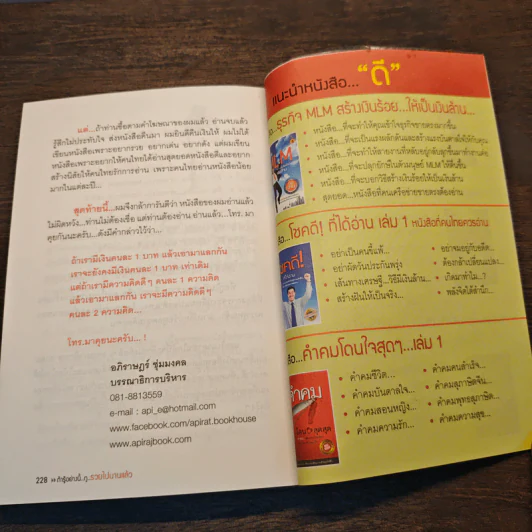 แต่...ถ้าท่านซื้อตามคำโฆษณาของผมแล้ว อ่านจบแล้ว
รู้สึกไม่ประทับใจ ส่งหนังสือคืนมา ผมยินดีคืนเงินให้ ผมไม่ได้
เขียนหนังสือเพราะอยากรวย อยากเด่น อยากดัง แต่ผมเขียน
หนังสือเพราะอยากให้คนไทยได้อ่านสุดยอดหนังสือดีและอยาก
สร้างนิสัยให้คนไทยรักการอ่าน เพราะคนไทยอ่านหนังสือน้อย
มากในแต่ละปี...
สุดท้ายนี้...ผมจึงกล้าการันตีว่า หนังสือของผมอ่านแล้ว
ไม่ผิดหวัง...ท่านไม่ต้องเชื่อ แต่ท่านต้องอ่าน อ่านแล้ว...โทร. มา
คุยกันนะครับ...ดังมีคำกล่าวไว้ว่า...
ถ้าเรามีเงินคนละ 1 บาท แล้วเอามาแลกกัน
เราจะยังคงมีเงินคนละ 1 บาท เท่าเดิม
แต่ถ้าเรามีความคิดดีๆ คนละ 1 ความคิด
แล้วเอามาแลกกัน เราจะมีความคิดดีๆ
คนละ 2 ความคิด...
โทร.มาคุยนะครับ... !
อภิราษฎร์ ชุ่มมงคล
บรรณาธิการบริหาร
081-8813559
e-mail : api_e@hotmail.com
www.facebook.com/apirat.bookhouse
www.apirajbook.com
228
แนะนำหนังสือ... “ดี”
ธุรกิจ MLM สร้างเงินร้อย...ให้เป็นเงินล้าน...
หนังสือ...ที่จะทำให้คุณเข้าใจธุรกิจขายตรงมากขึ้น
หนังสือ...ที่จะปลุกยักษ์ในตัวมนุษย์ MLM ให้ตื่นขึ้น
หนังสือ...ที่จะบอกวิธีสร้างเงินร้อยให้เป็นเงินล้าน
สุดยอด...หนังสือที่คนเครือข่ายขายตรงต้องอ่าน
โชคดี! ที่ได้อ่าน เล่ม 1 หนังสือที่คนไทยควรอ่าน
อย่าเป็นคนขี้แพ้...
อย่าผัดวันประกันพรุ่ง
เส้นทางเศรษฐี...วิธีมีเงินล้าน...
สร้างฝันให้เป็นจริง...
อย่าจมอยู่กับอดีต...
ต้องกล้าเปลี่ยนแปลง...
เกิดมาทำไม...?
พลังจิตใต้สำนึก...
คำคมโดนใจสุดๆ...เล่ม 1
คำคม
คำคมชีวิต...
คำคมบันดาลใจ...
คำคมสอนหญิง...
คำคมความรัก...
คำคมคนสำเร็จ...
คำคมสุภาษิตจีน...
คำคมพุทธสุภาษิต...
คำคมความสุข...